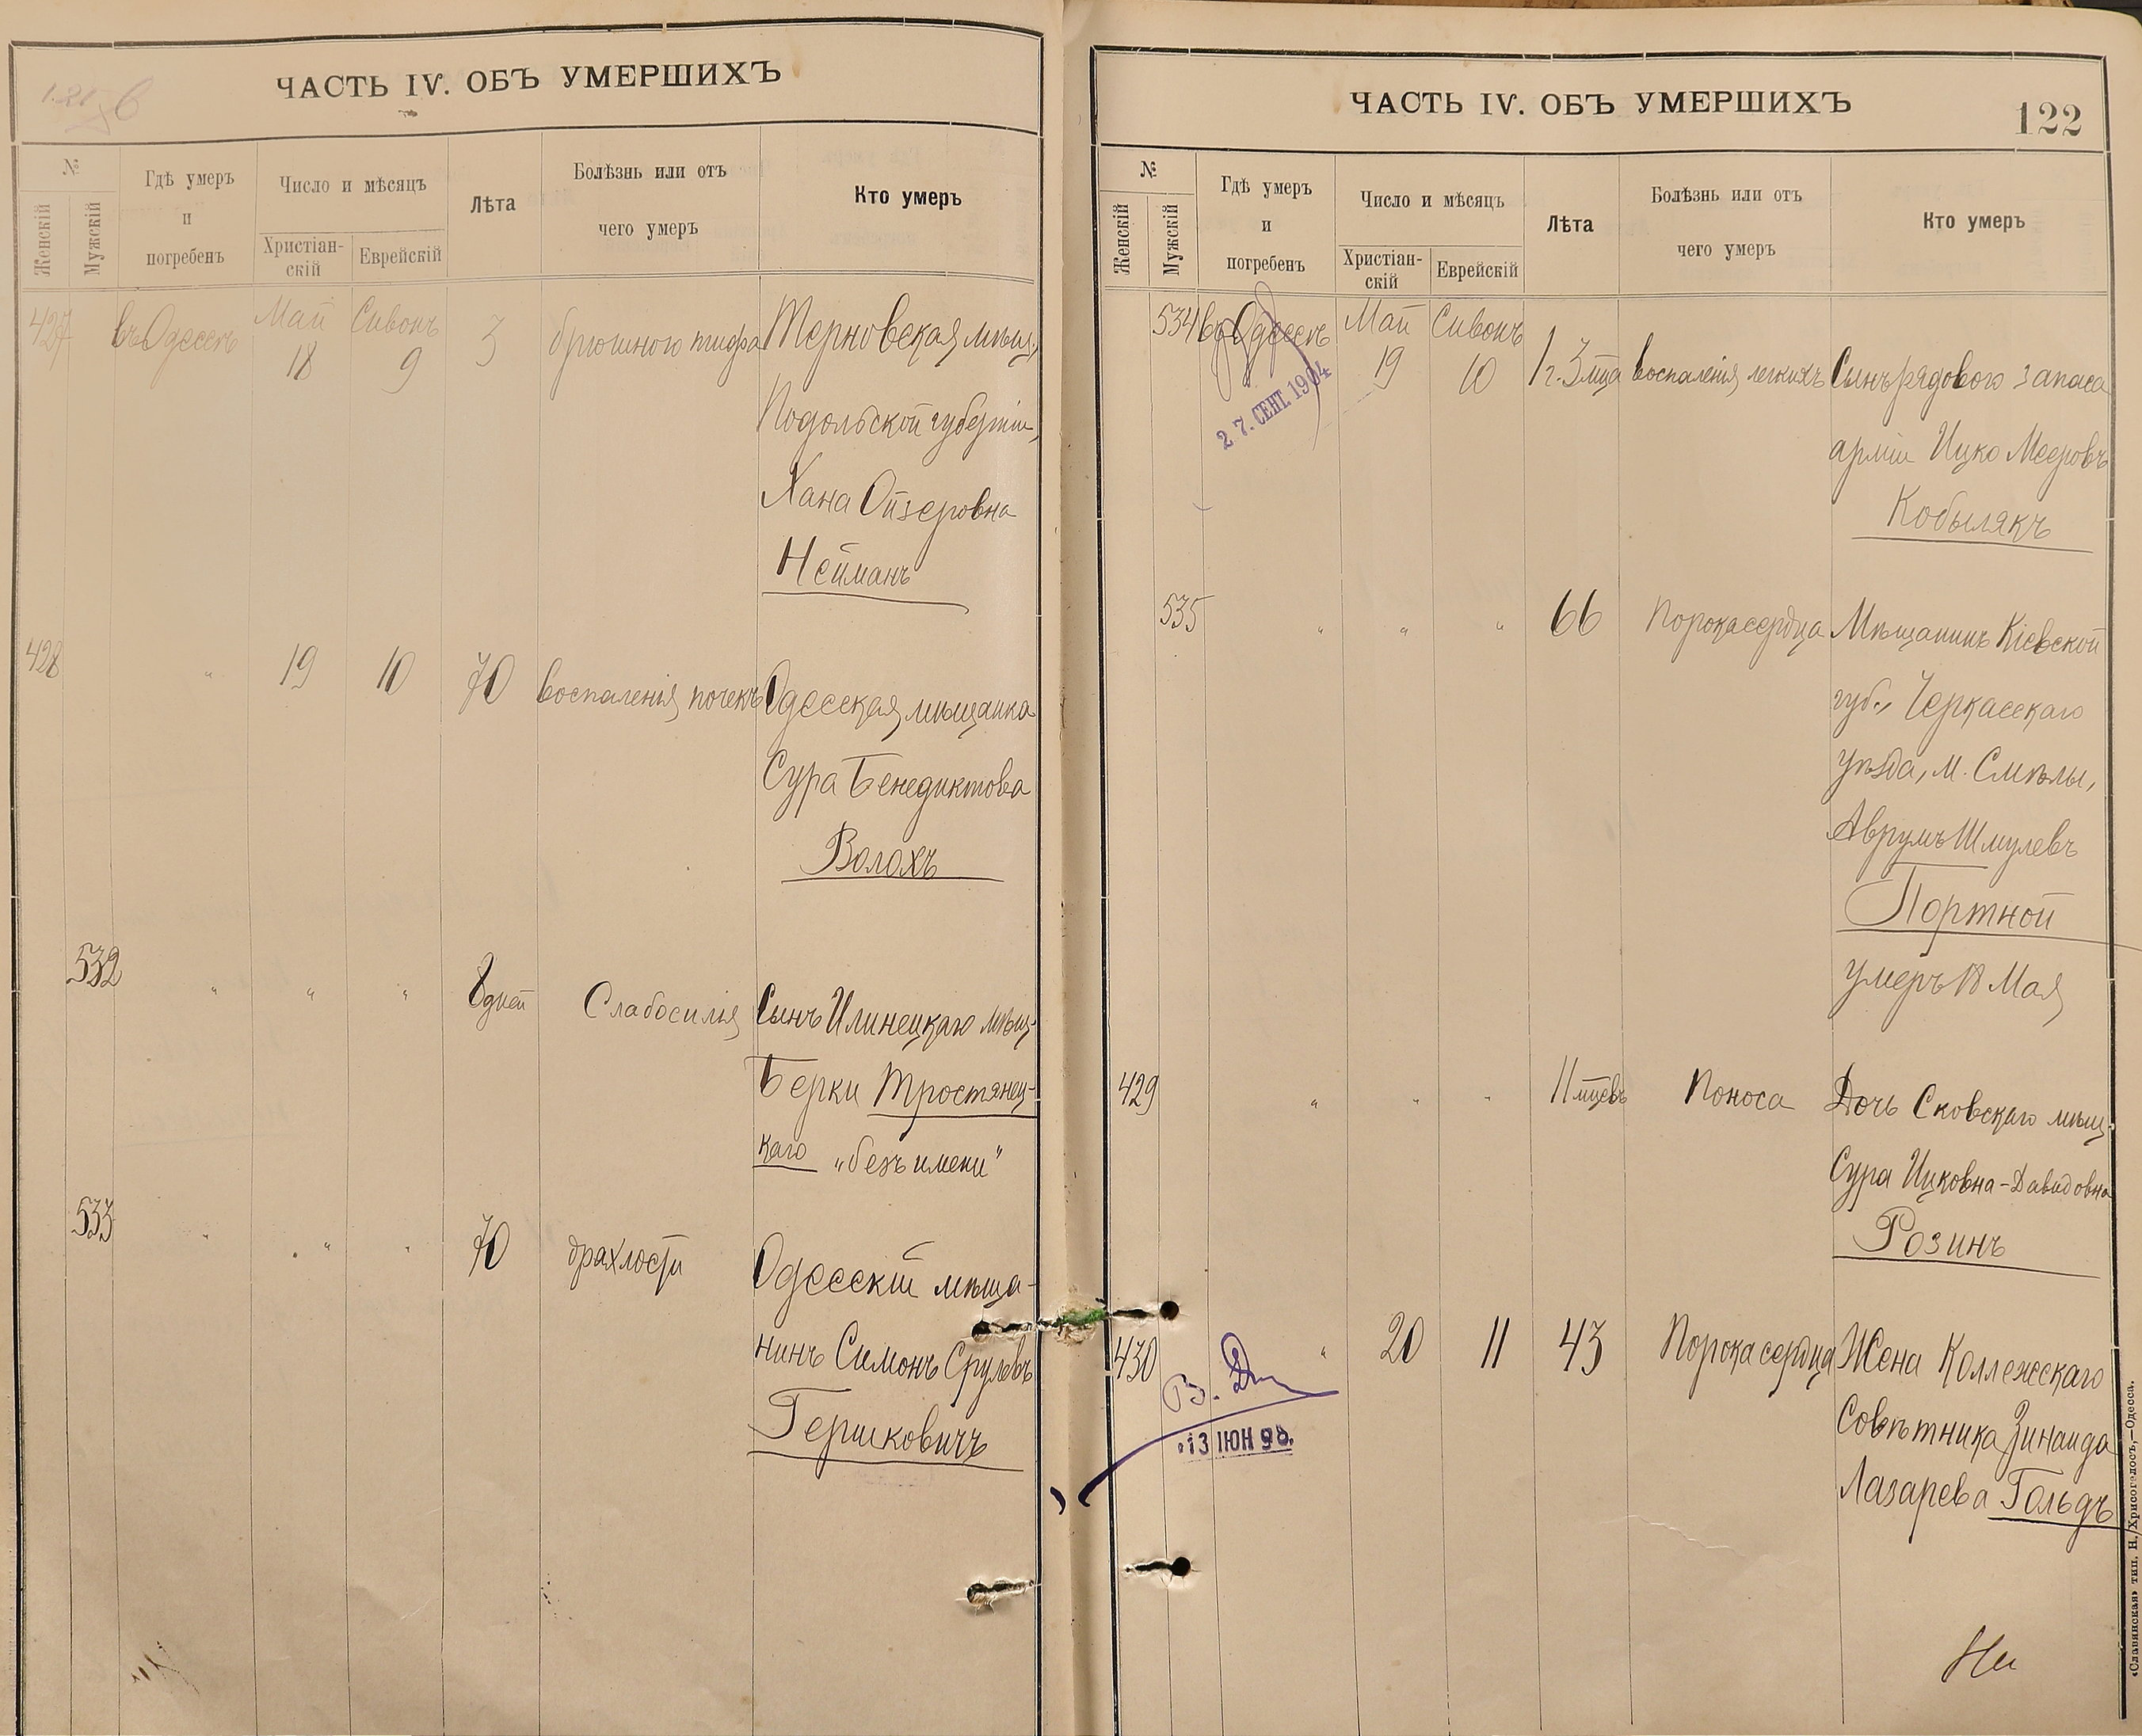 ЧАСТЬ IV. ОБЪ УМЕРШИХЪ
№
Женскій
Мужскій
Гдѣ умеръ
и
погребенъ
Число и мѣсяцъ
Христіан-
скій
Еврейскій
Лѣта
Болѣзнь или отъ
чего умеръ
Кто умеръ
427 въ Одессѣ Май Сивонъ
18 9 3 брюшного тифа Терновская мѣщ.,
Подольской губерніи,
Хана Ойзеровна
Нейманъ
428 " 19 10 70 воспаленія почекъ Одесская мѣщанка
Сура Бенедиктова
Волохъ
532 " " " 8 дней Слабосилія Сынъ Илинецкаго мѣщ.
Берки Тростянец-
каго „безъ имени"
533 " " " 70 драхлости Одесскій мѣща-
нинъ Симонъ Срулевъ
Гершковичъ
ЧАСТЬ IV. ОБЪ УМЕРШИХЪ
122
№
Женскій
Мужскій
Гдѣ умеръ
и
погребенъ
Число и мѣсяцъ
Христіан-
скій
Еврейскій
Лѣта
Болѣзнь или отъ
чего умеръ
Кто умеръ
534 въ Одессѣ Май Сивонъ
19 10 1 г. 3 мца воспаленія легкихъ Сынъ рядового запаса
27. СЕНТ. 1904
арміи Ицко Мееровъ
Кобылякъ
535 " " " 66 Порока сердца Мѣщанинъ Кіевской
губ., Черкасскаго
уѣзда, м. Смѣлы,
Аврумъ Шмулевъ
Портной
умеръ 18 Мая
429 " " " 11 мцевъ Поноса Дочь Сковскаго мѣщ.
Сура Ицковна-Давидовна
Розинъ
430 " 20 11 43 Порока сердца Жена Коллежскаго
Совѣтника Зинаида
13 ІЮН 98.
Лазарева Гольдъ
«Славянская» тип. Н. Хрисогелосъ,—Одесса.